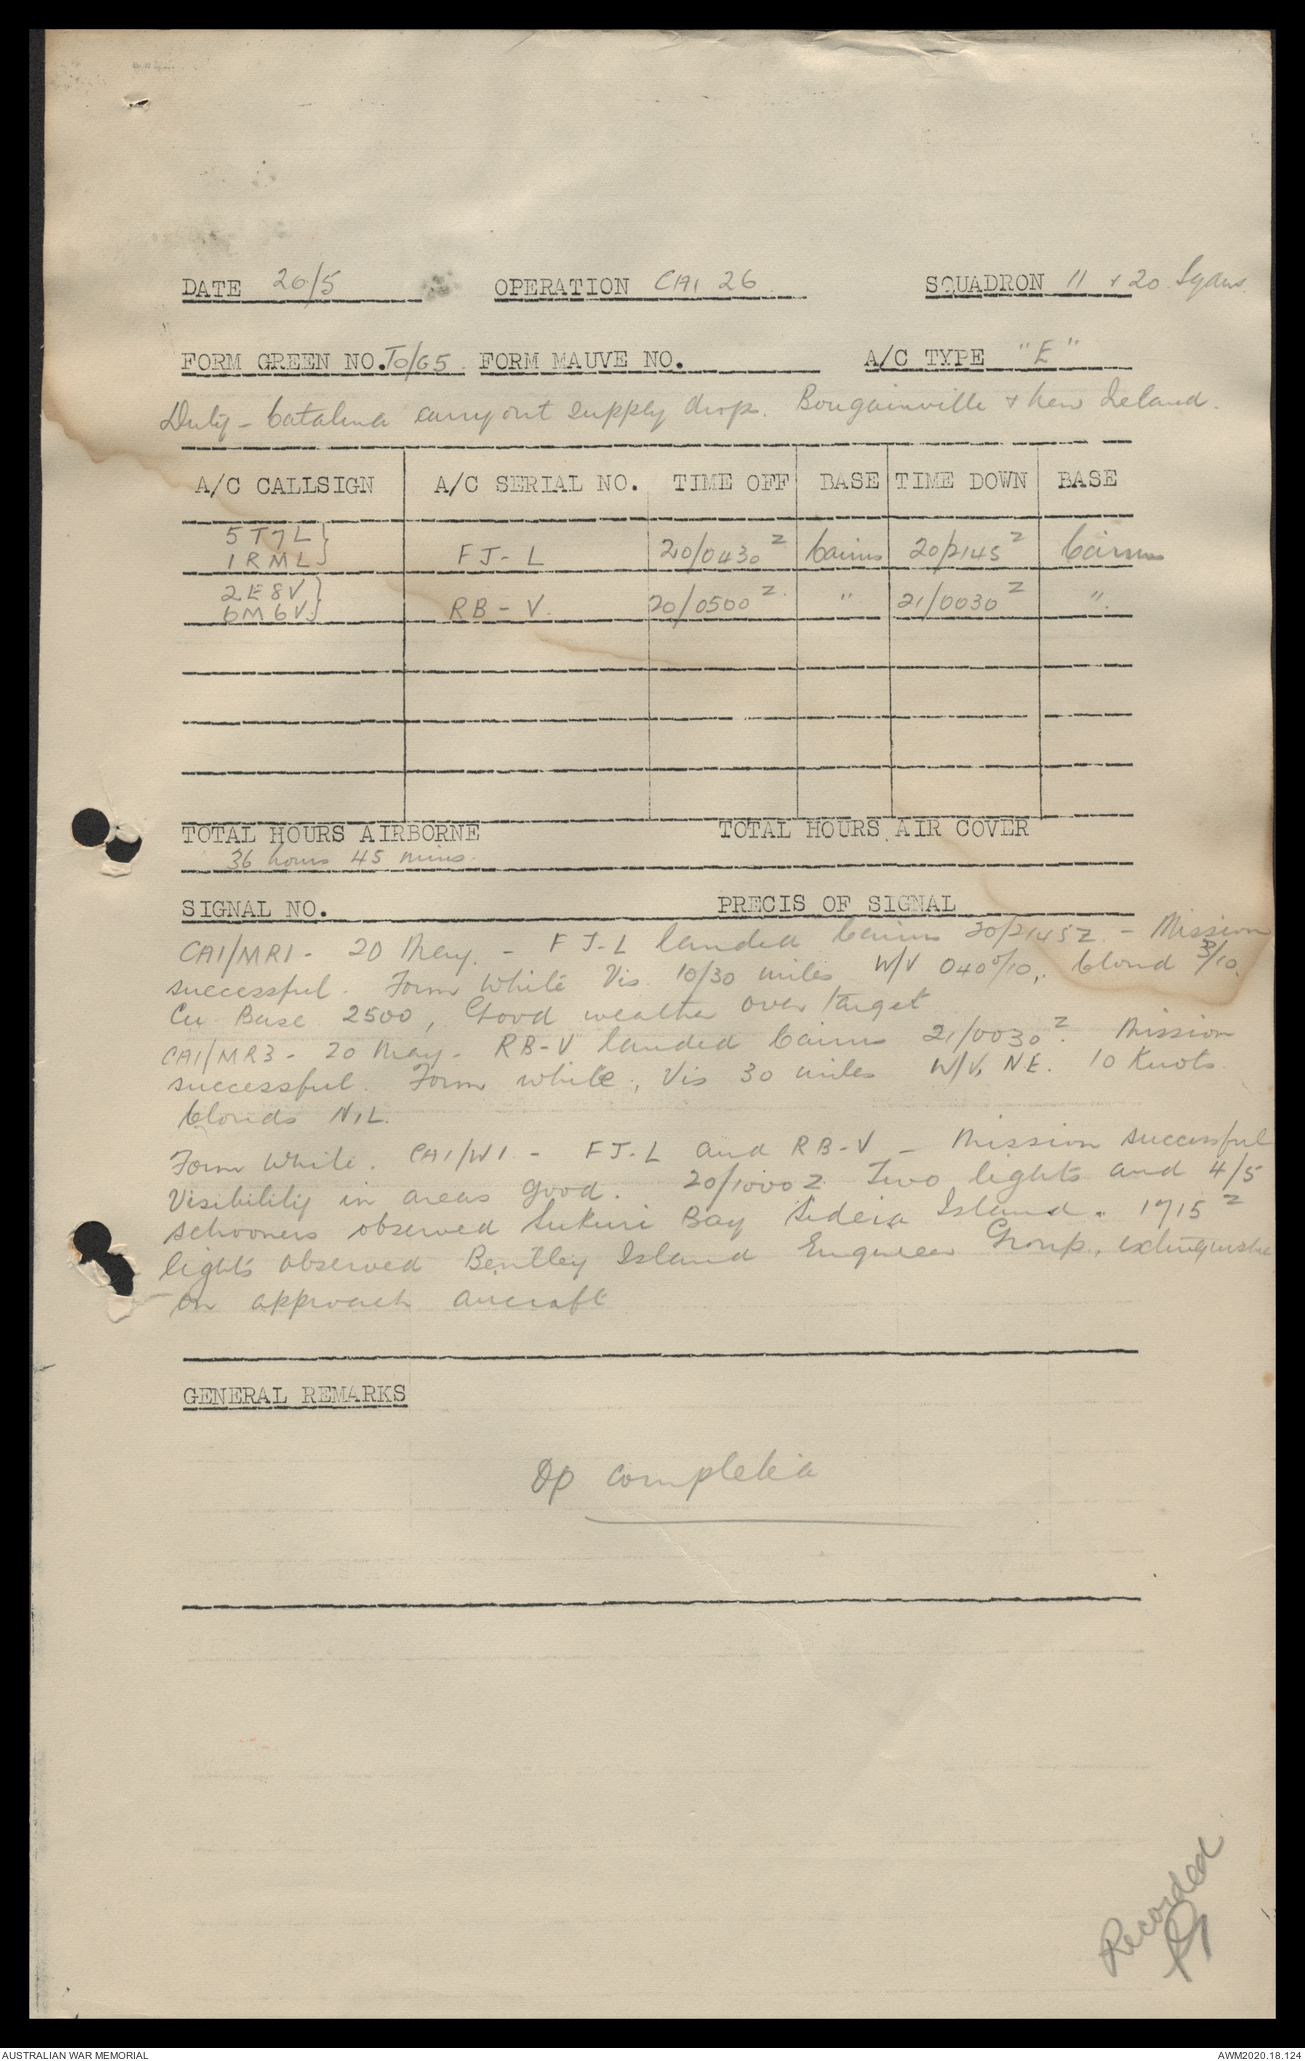 DATE 20/5 OPERATION CAI 26 SQUADRON 11 + 20 Sqdns.
FORM GREEN NO. TO/G5 FORM MAUVE NO. A/C TYPE "E"
Duty - Catalina carry out supply drop. Bougainville + New Ireland.
A/C CALLSIGN A/C SERIAL NO. TIME OFF BASE TIME DOWN BASE
5T7L}
1RML} FJ-L 20/0430 Z Cairns 20/2145 Z Cairns
2E8V}
6M6V} RB-V. 20/0500 Z. " 21/0030 Z ".
TOTAL HOURS AIRBORNE TOTAL HOURS AIR COVER
36 hours 45 mins.
SIGNAL NO. PRECIS OF SIGNAL
CA1/MR1 - 20 May. - FJ-L landed Cairns 20/2145Z - Mission
successful. Form White Vis. 10/30 miles W/V 040°/10, Cloud 3/10.
Cu Base 2500, Good weather over target
CA1/MR3 - 20 May - RB-V landed Cairns 21/0030 Z. Mission
successful. Form white, Vis 30 miles W/V, N.E. 10 Knots.
Clouds NIL.
Form White. CA1/W1 - FJ-L and RB-V - Mission successful
Visibility in areas good. 20/1000Z Two lights and 4/5
schooners observed Bay Sideia Island. 1715 Z
lights observed Bentley Island Engineer Group, extinguished
on approach aircraft
GENERAL REMARKS
Op completed
Recorded
AUSTRALIAN WAR MEMORIAL AWM2020.18.124